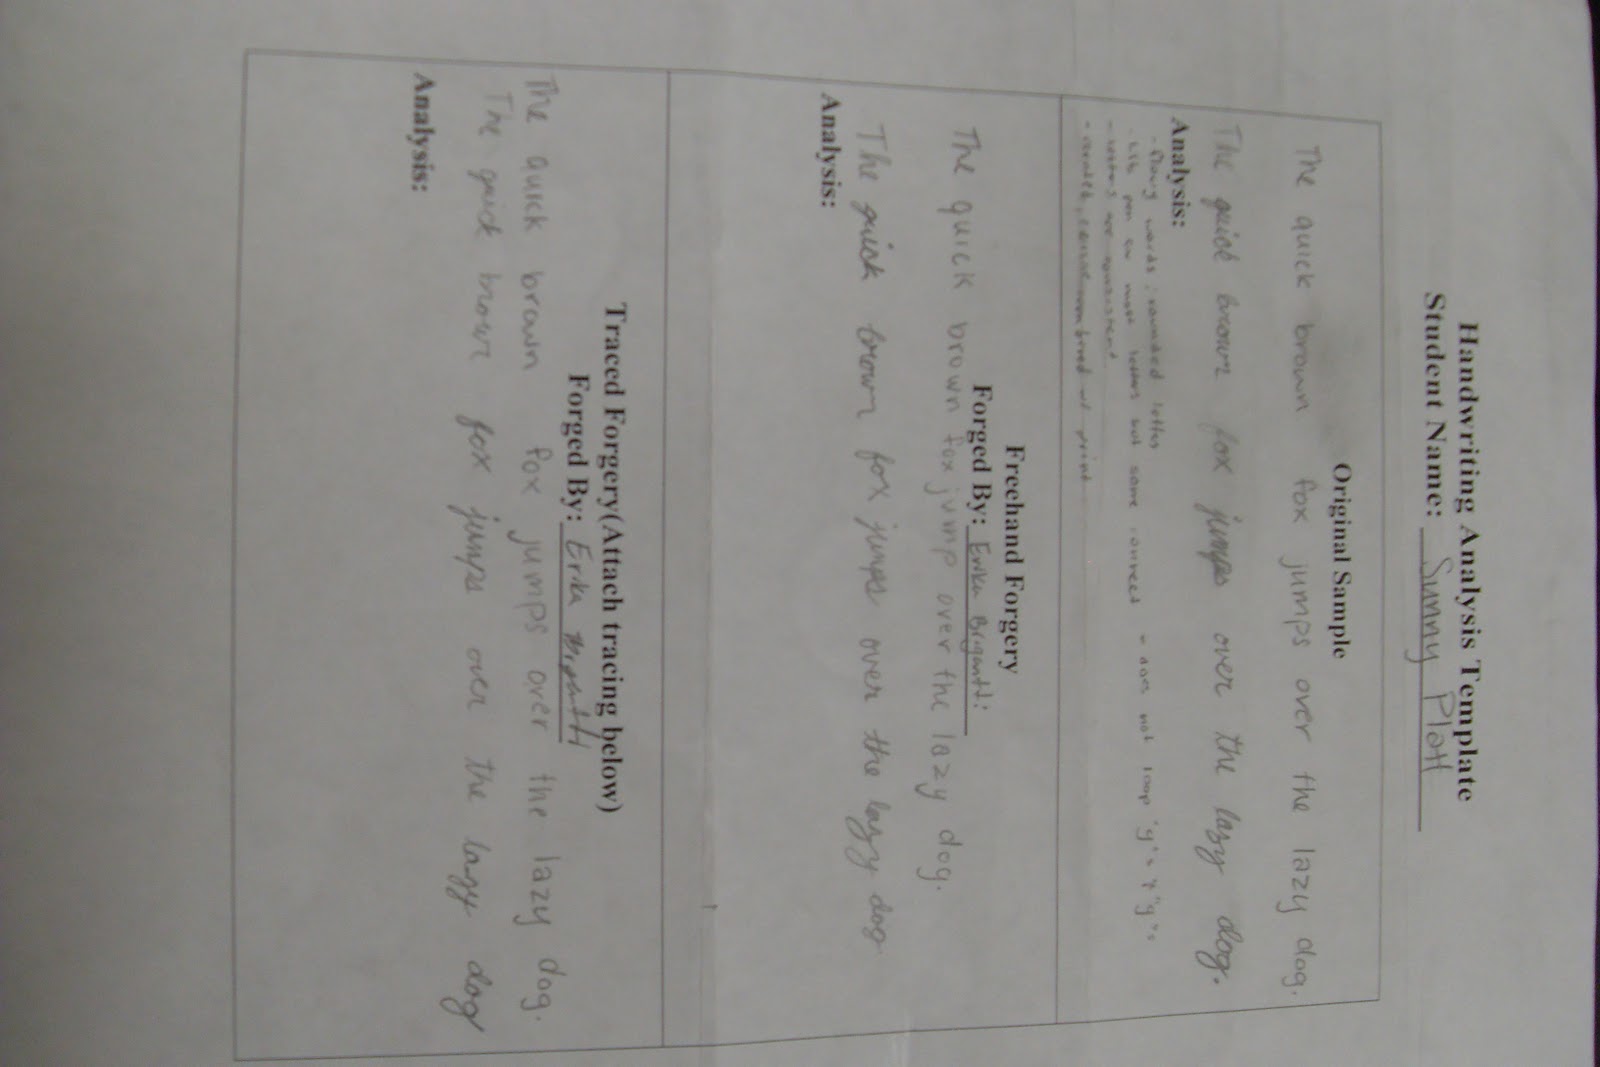 Handwriting Analysis Template
Student Name: Sunny Platt
Original Sample
The quick brown fox jumps over the lazy dog.
The quick brown fox jumps over the lazy dog.
Analysis:
- flowy words, rounded letters
- lift pen on most letters but some connect - does not loop "g"s + "y"s
- are consistent
- combined w/ print
Freehand Forgery
Forged By: Erika Briganti
The quick brown fox jump over the lazy dog.
The quick brown fox jumps over the lazy dog
Analysis:
Traced Forgery(Attach tracing below)
Forged By: Erika Briganti
The quick brown fox jumps over the lazy dog.
The quick brown fox jumps over the lazy dog
Analysis: